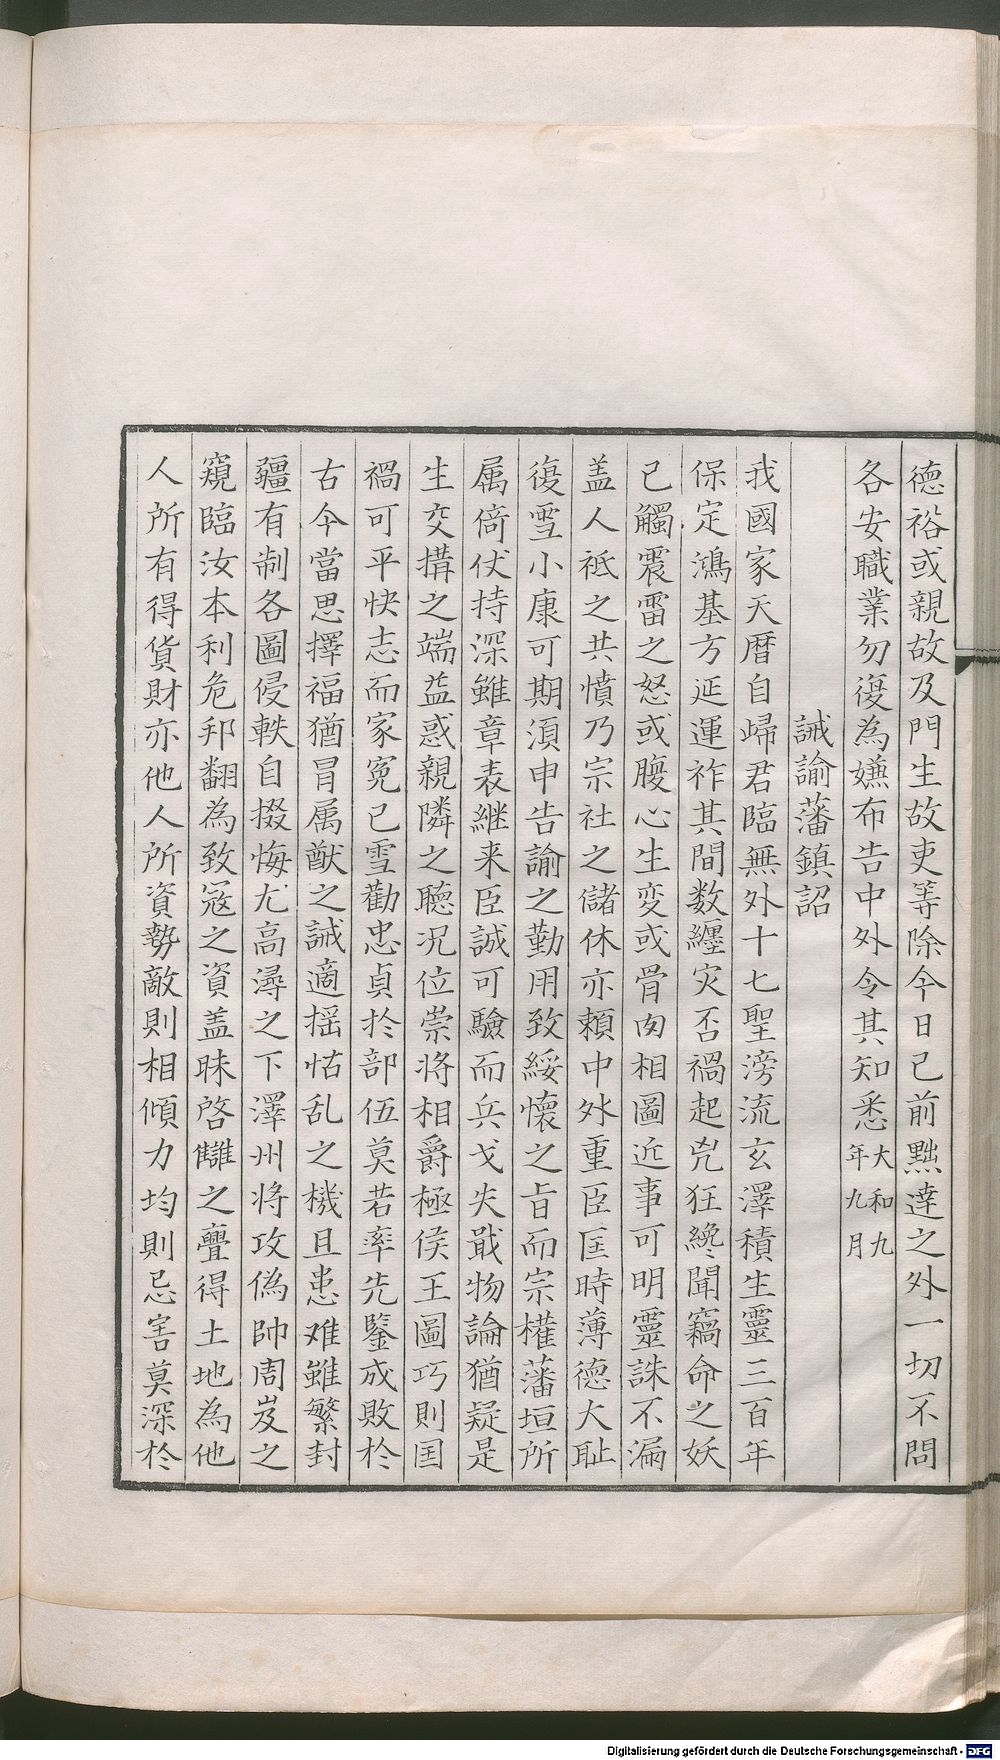 德裕或親故及門生故吏等除今日已前黜逹之外一切不問
各安職業勿復為嫌布告中外令其知悉大和九年九月
誡諭藩鎮詔
我國家天曆自歸君臨無外十七聖滂流玄澤積生靈三百年
保定鴻基方延運祚其間数纒灾否禍起兇狂纔聞竊命之妖
已觸震雷之怒或腹心生变或骨肉相圖近事可明靈誅不漏
盖人祗之共憤乃宗社之儲休亦賴中外重臣匡時薄德大耻
復雪小康可期湏申告諭之勤用致綏懷之旨而宗權藩垣所
属倚仗持深雖章表継来臣誠可驗而兵戈失戢物論猶疑是
生交搆之端益惑親隣之聽况位崇将相爵極侯王圖巧則国
禍可平快志而家寃已雪勸忠貞扵部伍莫若率先鑒成敗扵
古今當思擇福猶冒属猷之誡適揺怙乱之機且患难雖繁封
疆有制各圖侵軼自掇悔尤高潯之下澤州将攻偽帥周岌之
窺臨汝本利危邦翻為致宼之資盖昧啓讎之舋得土地為他
人所有得貨財亦他人所資勢敵則相傾力均則忌害莫深扵
Digitalisierung gefördert durch die Deutsche Forschungsgemeinschaft - DFG